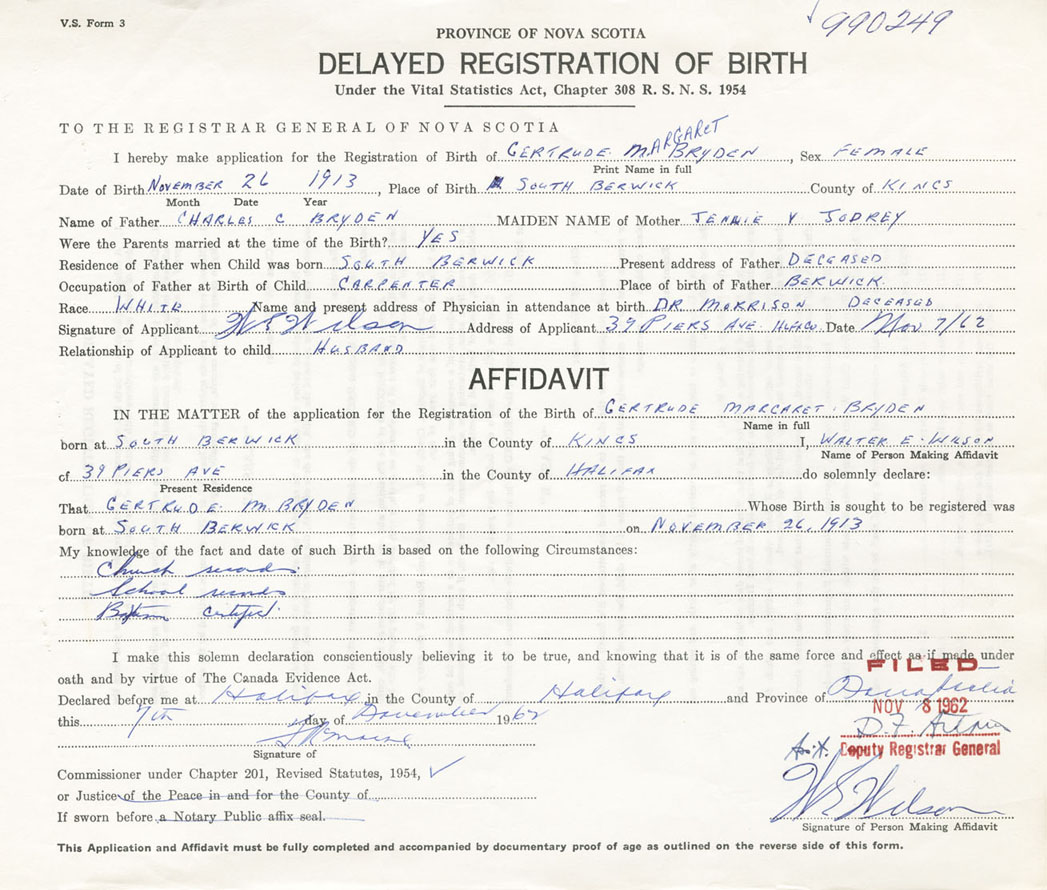 V.S. Form 3
990249
PROVINCE OF NOVA SCOTIA
DELAYED REGISTRATION OF BIRTH
Under the Vital Statistics Act, Chapter 308 R. S. N. S. 1954
TO THE REGISTRAR GENERAL OF NOVA SCOTIA
I hereby make application for the Registration of Birth of GERTRUDE MARGARET BRYDEN, Sex FEMALE
Print Name in full
Date of Birth NOVEMBER 26 1913, Place of Birth SOUTH BERWICK County of KINGS
Month Date Year
Name of Father CHARLES C BRYDEN MAIDEN NAME of Mother JENNIE V JODREY
Were the Parents married at the time of the Birth? YES
Residence of Father when Child was born SOUTH BERWICK Present address of Father DECEASED
Occupation of Father at Birth of Child CARPENTER Place of birth of Father BERWICK.
Race WHITE Name and present address of Physician in attendance at birth DR MORRISON DECEASED
Signature of Applicant W E Wilson Address of Applicant 39 PIERS AVE Date Nov 7/62
Relationship of Applicant to child HUSBAND
AFFIDAVIT
IN THE MATTER of the application for the Registration of the Birth of GERTRUDE MARGARET BRYDEN
Name in full
born at SOUTH BERWICK in the County of KINGS I, WALTER E. WILSON
Name of Person Making Affidavit
of 39 PIERS AVE in the County of HALIFAX do solemnly declare:
Present Residence
That GERTRUDE M. BRYDEN Whose Birth is sought to be registered was
born at SOUTH BERWICK on NOVEMBER 26, 1913
My knowledge of the fact and date of such Birth is based on the following Circumstances:
Church records
School records
I make this solemn declaration conscientiously believing it to be true, and knowing that it is of the same force and effect as if made under
FILED
oath and by virtue of The Canada Evidence Act.
Declared before me at Halifax in the County of Halifax and Province of Nova Scotia
NOV 8 1962
this 7th day of November 1962
Signature of
Asst. Deputy Registrar General
Commissioner under Chapter 201, Revised Statutes, 1954, ✓
or Justice of the Peace in and for the County of
W E Wilson
If sworn before a Notary Public affix seal.
Signature of Person Making Affidavit
This Application and Affidavit must be fully completed and accompanied by documentary proof of age as outlined on the reverse side of this form.